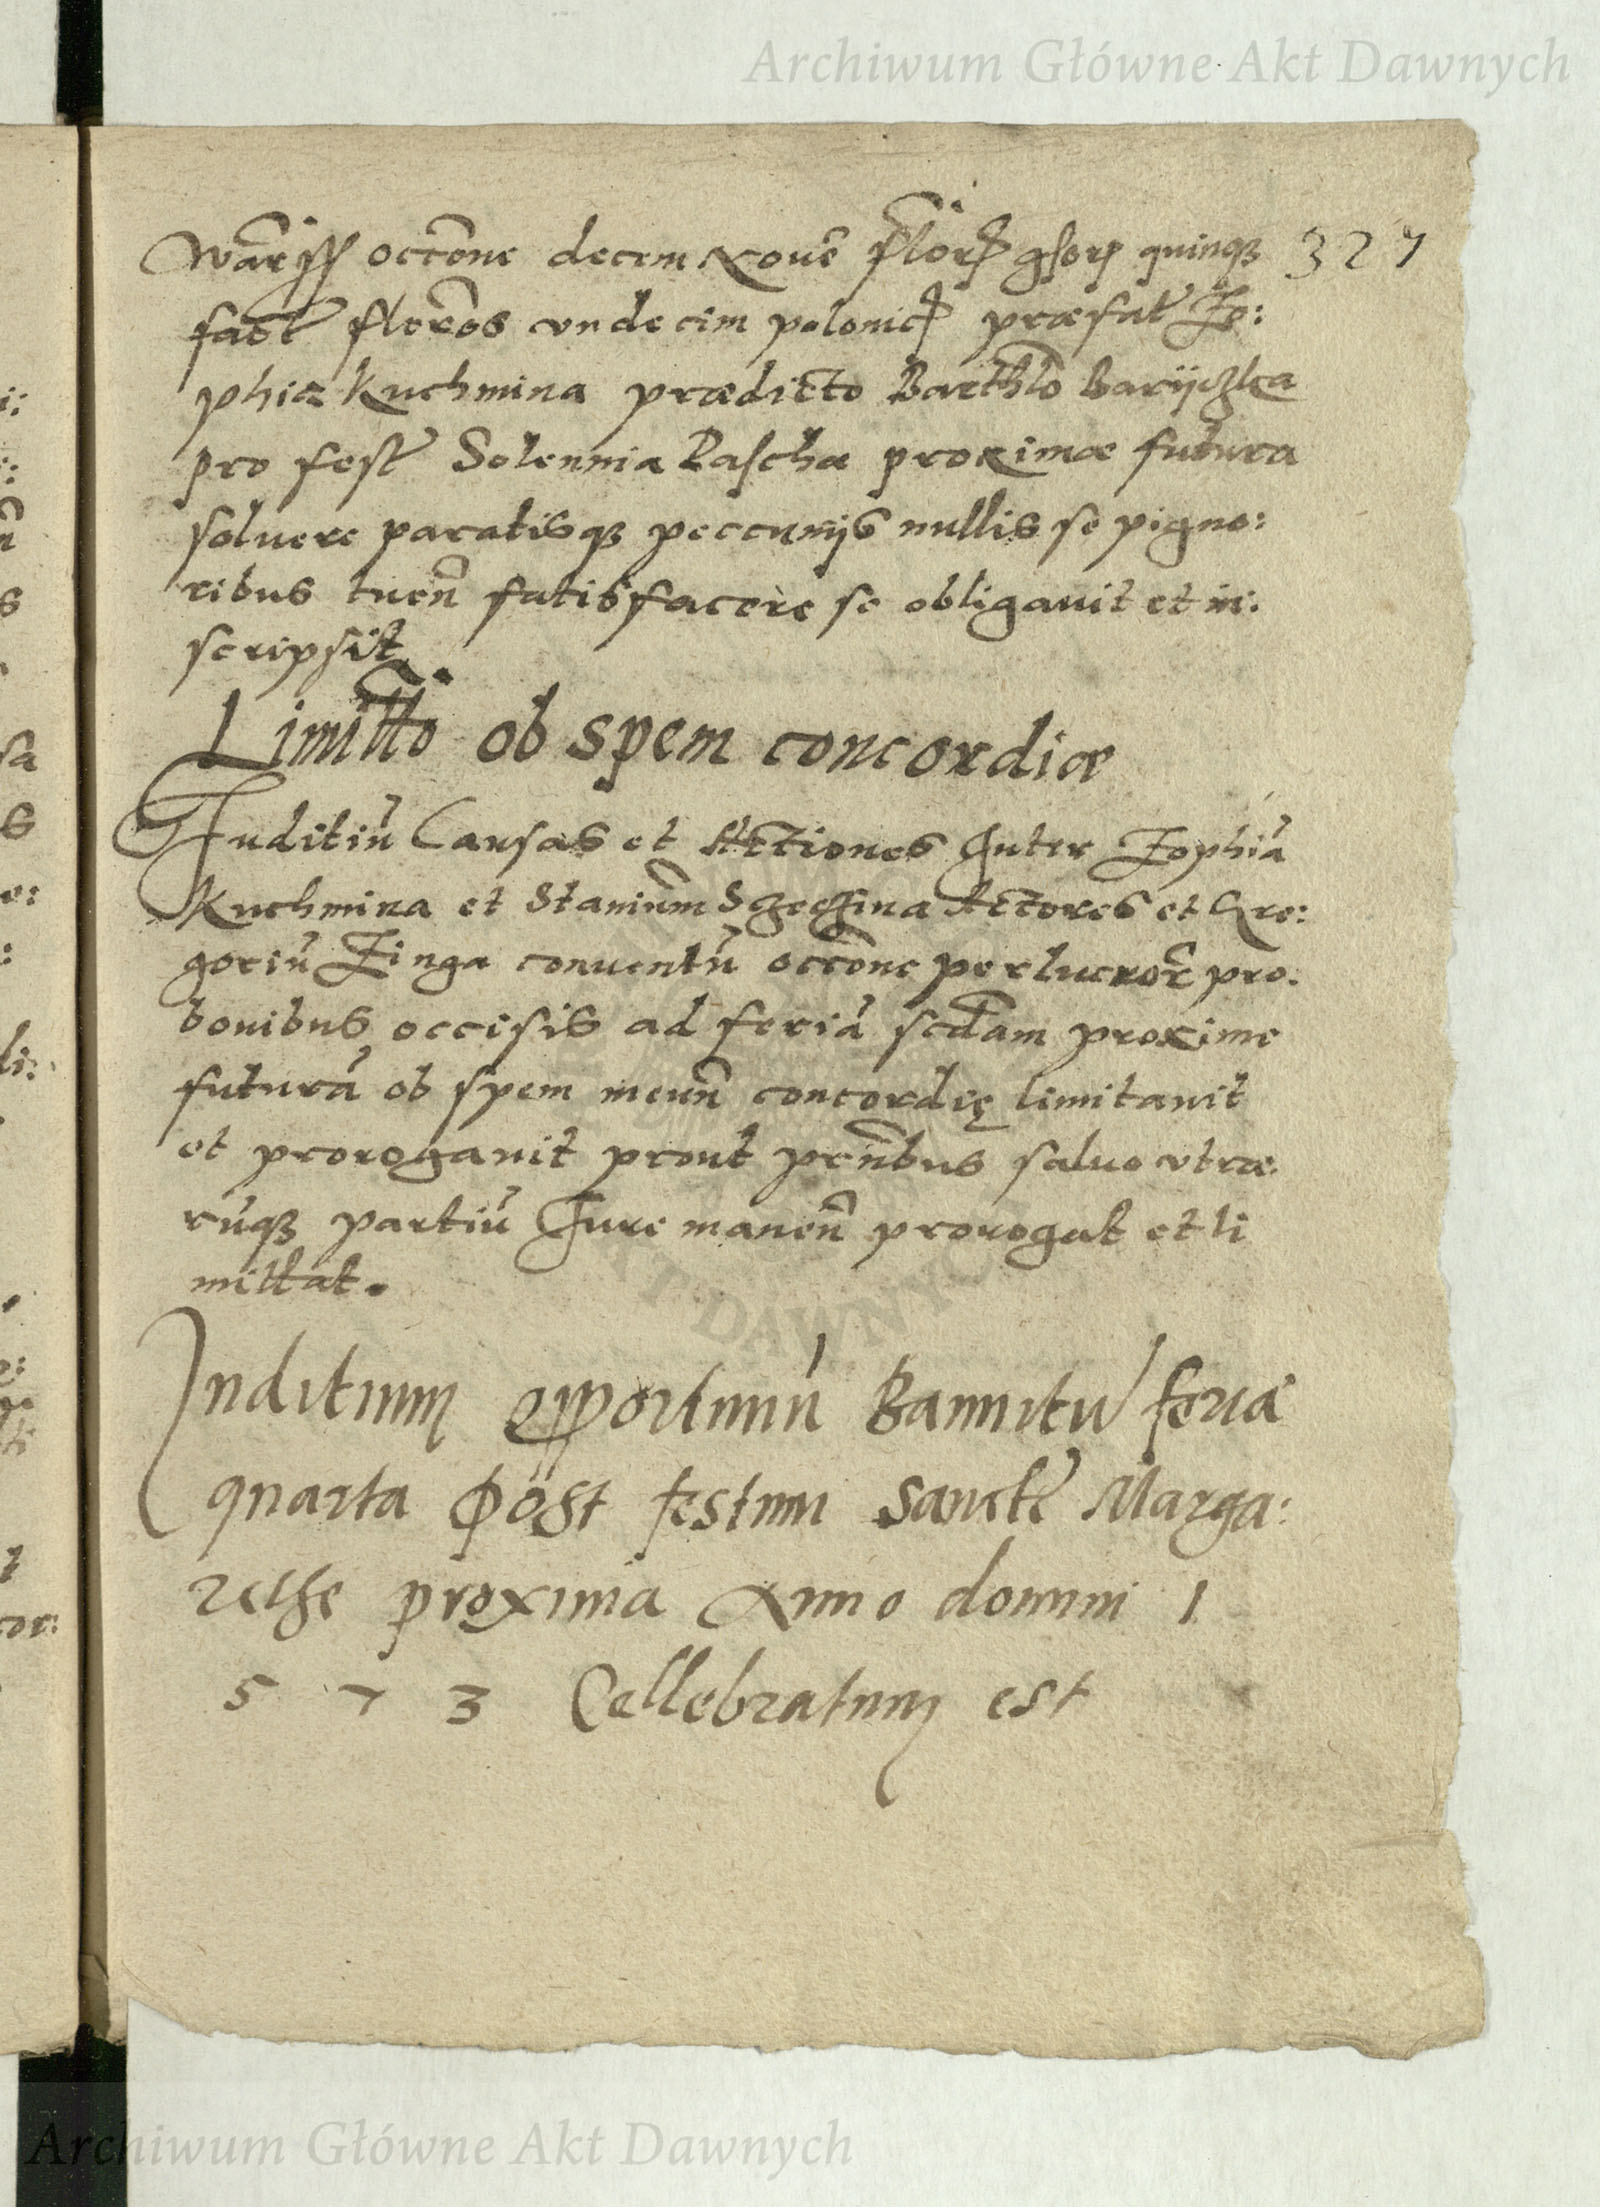 Archiwum Główne Akt Dawnych
octōne decem Nouē Flor quinqȝ 327
fact floros vndecim polonic præfat Zo:
phia Kuchmina prædicto Barthlō Barÿczka
pro fest Solennia Pascha proximæ futura
soluere paratisqȝ peccunijs nullis se pigno:
ribus tuen̄ satisfacere se obligauit et in:
scripsit
Limitto ob spem concordiæ
Juditiū Causas et Actiones Inter Zophiā
Kuchmina et Stanium Actores et Gre:
goriū Zinga conuentū occōne per pro.
bouibus occisis ad feriā scdam proxime
futurā ob spem meun̄ concordię limitauit
et prorogauit prout pr̄nbus saluo vtra:
rūqȝ partiū Jure manen̄ prorogat et li
mittat.
Juditium opportunū Bannitū feria
quarta Post festum Sancte Marga:
rethe proxima Anno domini 1
5 7 3 Cellebratum est
Archiwum Główne Akt Dawnych